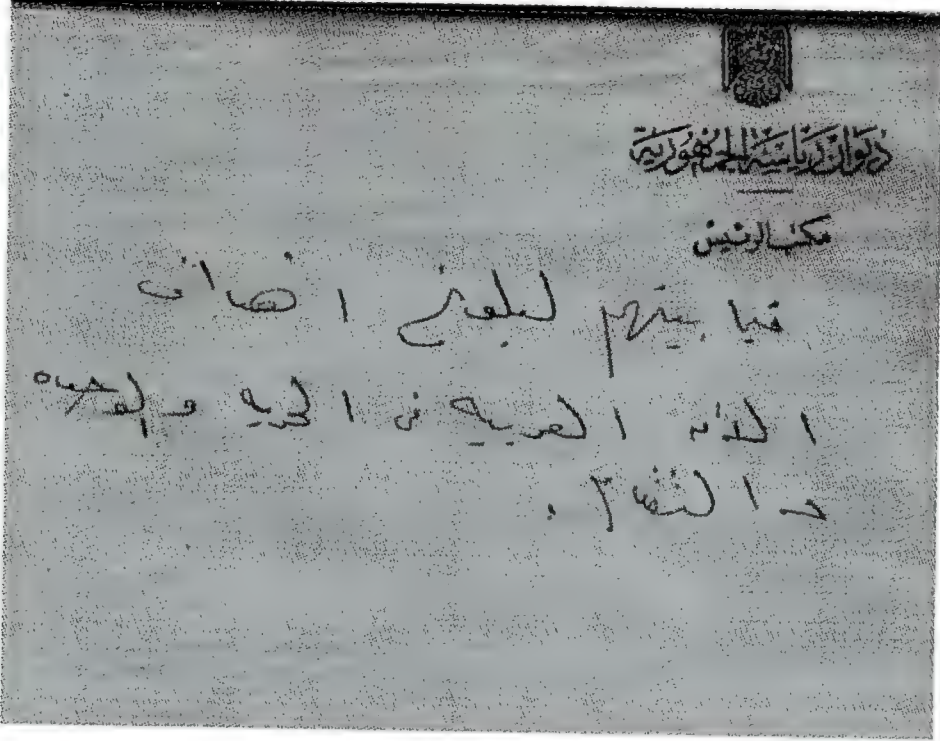 ديوان رئاسة الجمهورية
مكتب الرئيس
فيما بينهم لبلوغ اهداف
الامه العربيه في الحريه والوحده
والتقدم .